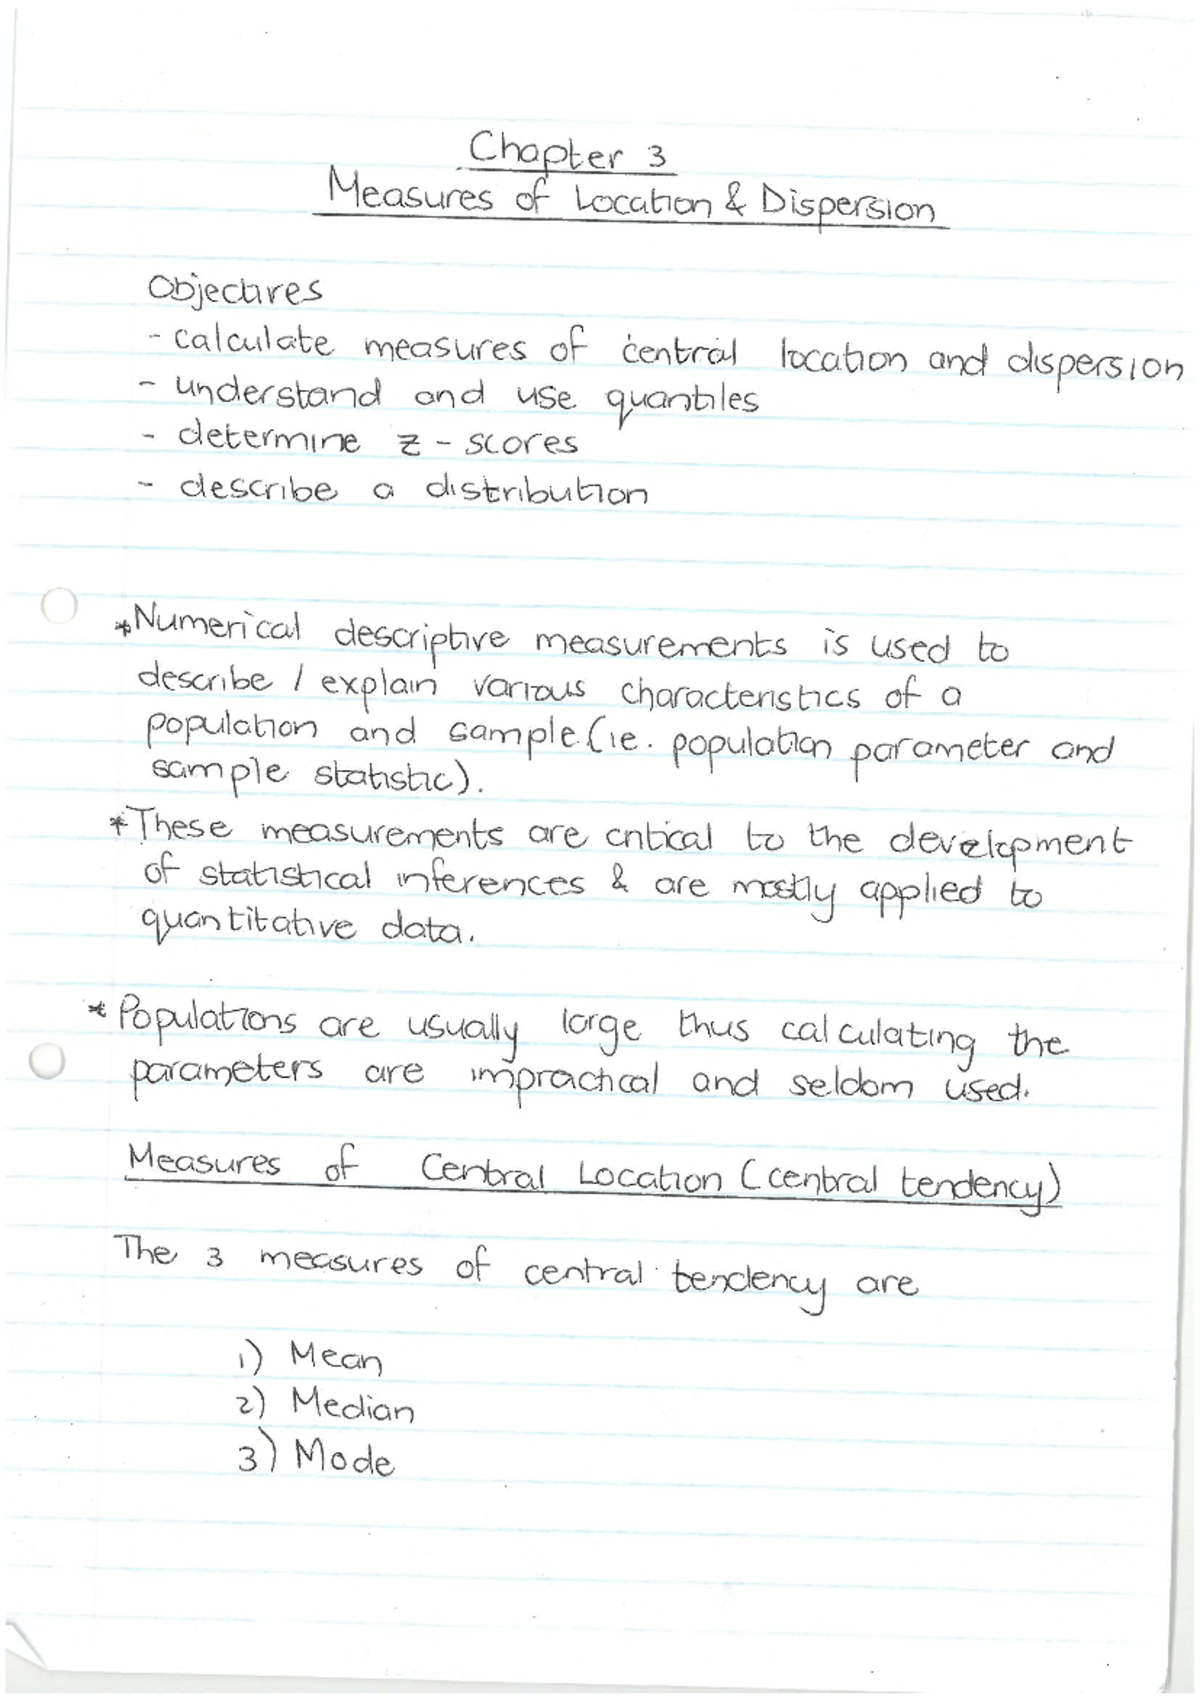 Chapter 3
Measures of Location & Dispersion
Objectives
- calculate measures of central location and dispersion
- understand and use quantiles
- determine z - scores
- describe a distribution
* Numerical descriptive measurements is used to
describe / explain various characteristics of a
population and sample (ie. population parameter and
sample statistic).
* These measurements are critical to the development
of statistical inferences & are mostly applied to
quantitative data.
* Populations are usually large thus calculating the
parameters are impractical and seldom used.
Measures of Central Location (central tendency)
The 3 measures of central tendency are
1) Mean
2) Median
3) Mode